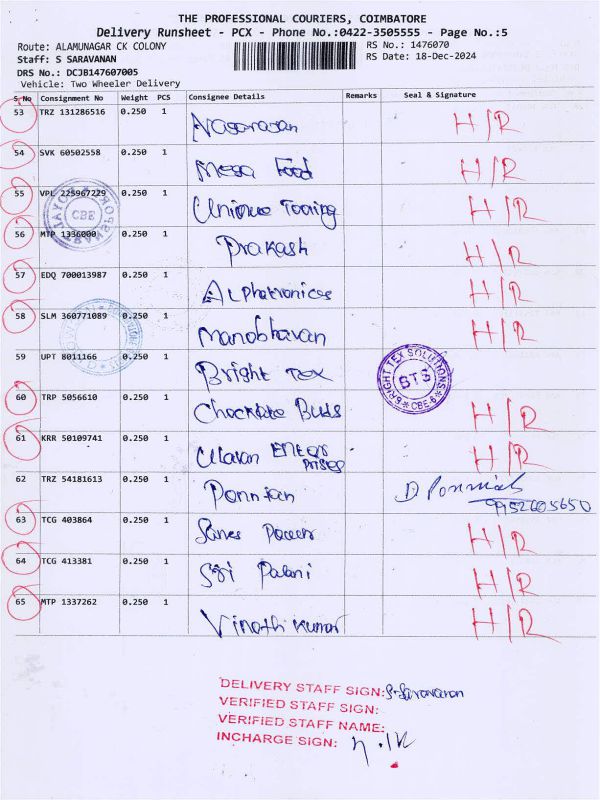 THE PROFESSIONAL COURIERS, COIMBATORE
Delivery Runsheet - PCX - Phone No.:0422-3505555 - Page No.:5
Route: ALAMUNAGAR CK COLONY RS No.: 1476070
Staff: S SARAVANAN RS Date: 18-Dec-2024
DRS No.: DCJB147607005
Vehicle: Two Wheeler Delivery
S No Consignment No Weight PCS Consignee Details Remarks Seal & Signature
53 TRZ 131286516 0.250 1 H/R
54 SVK 60502558 0.250 1 Mega Food H/R
55 VPL 225967229 0.250 1 Unique Tooling H/R
CBE
56 MTP 1336000 0.250 1 Prakash H/R
57 EDQ 700013987 0.250 1 Alphatronices H/R
58 SLM 360771089 0.250 1 Manobhavan H/R
59 UPT 8011166 0.250 1 Bright Tex BRIGHT TEX SOLUTIONS BTS CBE-6
60 TRP 5056610 0.250 1 H/R
61 KRR 50109741 0.250 1 Enter prises H/R
62 TRZ 54181613 0.250 1 9952605650
63 TCG 403864 0.250 1 H/R
64 TCG 413381 0.250 1 Sri Palani H/R
65 MTP 1337262 0.250 1 Vinoth Kumar H/R
DELIVERY STAFF SIGN: S. Saravanan
VERIFIED STAFF SIGN:
VERIFIED STAFF NAME:
INCHARGE SIGN: